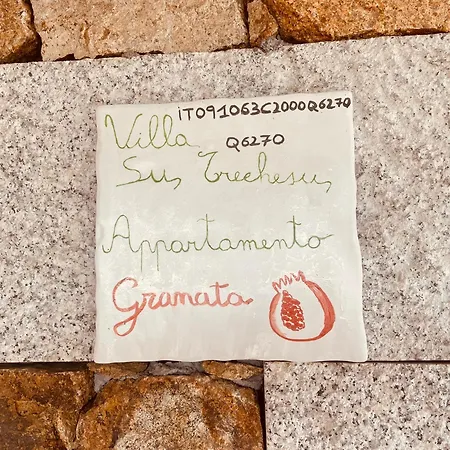 IT091063C2000Q6270
Villa Q6270
Su Trechesu
Appartamento
Gramata